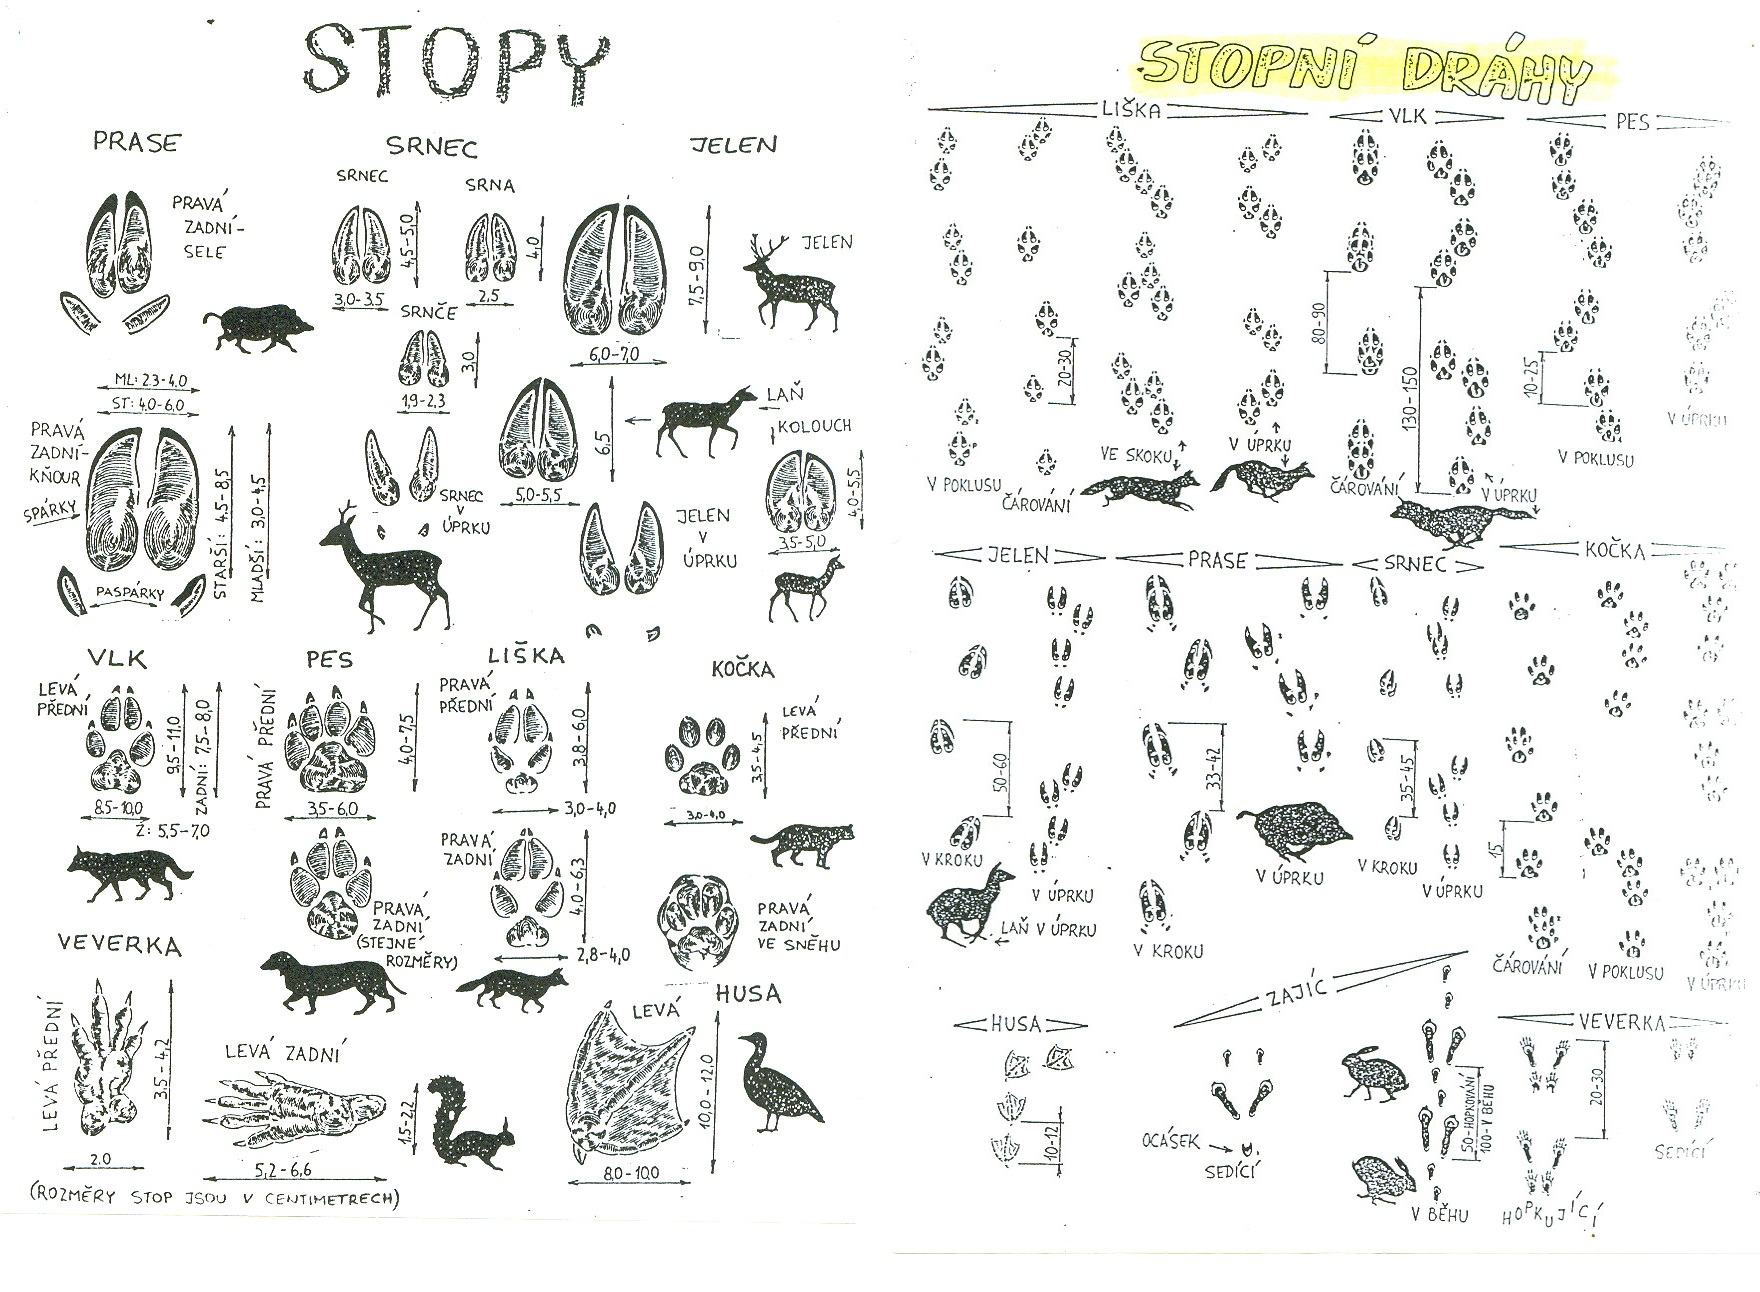 STOPY
PRASE
PRAVÁ
ZADNÍ-
SELE
ML: 2.3-4.0
ST: 4,0-6,0
PRAVÁ
ZADNÍ-
KŇOUR
SPÁRKY
PASPÁRKY
STARŠÍ: 4.5-8,5
MLADŠÍ: 3,0-4,5
SRNEC
SRNEC
4,5-5,0
3,0-3.5
SRNA
4,0
2,5
SRNČE
3,0
1,9-2,3
SRNEC
V
ÚPRKU
JELEN
7,5-9,0
6,0-7,0
JELEN
6,5
5,0-5,5
LAŇ
KOLOUCH
4.0-5.5
3,5-5,0
JELEN
V
ÚPRKU
VLK
LEVÁ
PŘEDNÍ
9,5-11,0
ZADNÍ: 7,5-8,0
8.5-10,0
Z: 5,5-7,0
PES
PRAVÁ PŘEDNÍ
4,0-7,5
3,5-6,0
PRAVÁ
ZADNÍ
(STEJNÉ
ROZMĚRY)
LIŠKA
PRAVÁ
PŘEDNÍ
3,8-6,0
3,0-4,0
PRAVÁ
ZADNÍ
4,0-6,3
2,8-4,0
KOČKA
LEVÁ
PŘEDNÍ
3,5-4,5
3,0-4,0
PRAVÁ
ZADNÍ
VE SNĚHU
VEVERKA
LEVÁ PŘEDNÍ
3,5-4,2
2,0
LEVÁ ZADNÍ
1.5-2,2
5,2-6,6
HUSA
LEVÁ
10,0-12,0
8,0-10,0
(ROZMĚRY STOP JSOU V CENTIMETRECH)
STOPNÍ DRÁHY
LIŠKA
VLK
PES
20-30
80-90
130-150
10-25
V POKLUSU
ČÁROVÁNÍ
VE SKOKU
V ÚPRKU
ČÁROVÁNÍ
V ÚPRKU
V POKLUSU
V ÚPRKU
JELEN
PRASE
SRNEC
KOČKA
50-60
33-42
35-45
15
V KROKU
V ÚPRKU
LAŇ V ÚPRKU
V KROKU
V ÚPRKU
V KROKU
V ÚPRKU
ČÁROVÁNÍ
V POKLUSU
V ÚPRKU
HUSA
10-12
ZAJÍC
OCÁSEK
SEDÍCÍ
50-HOPKOVÁNÍ
100-V BĚHU
V BĚHU
VEVERKA
20-30
HOPKUJÍCÍ
SEDÍCÍ